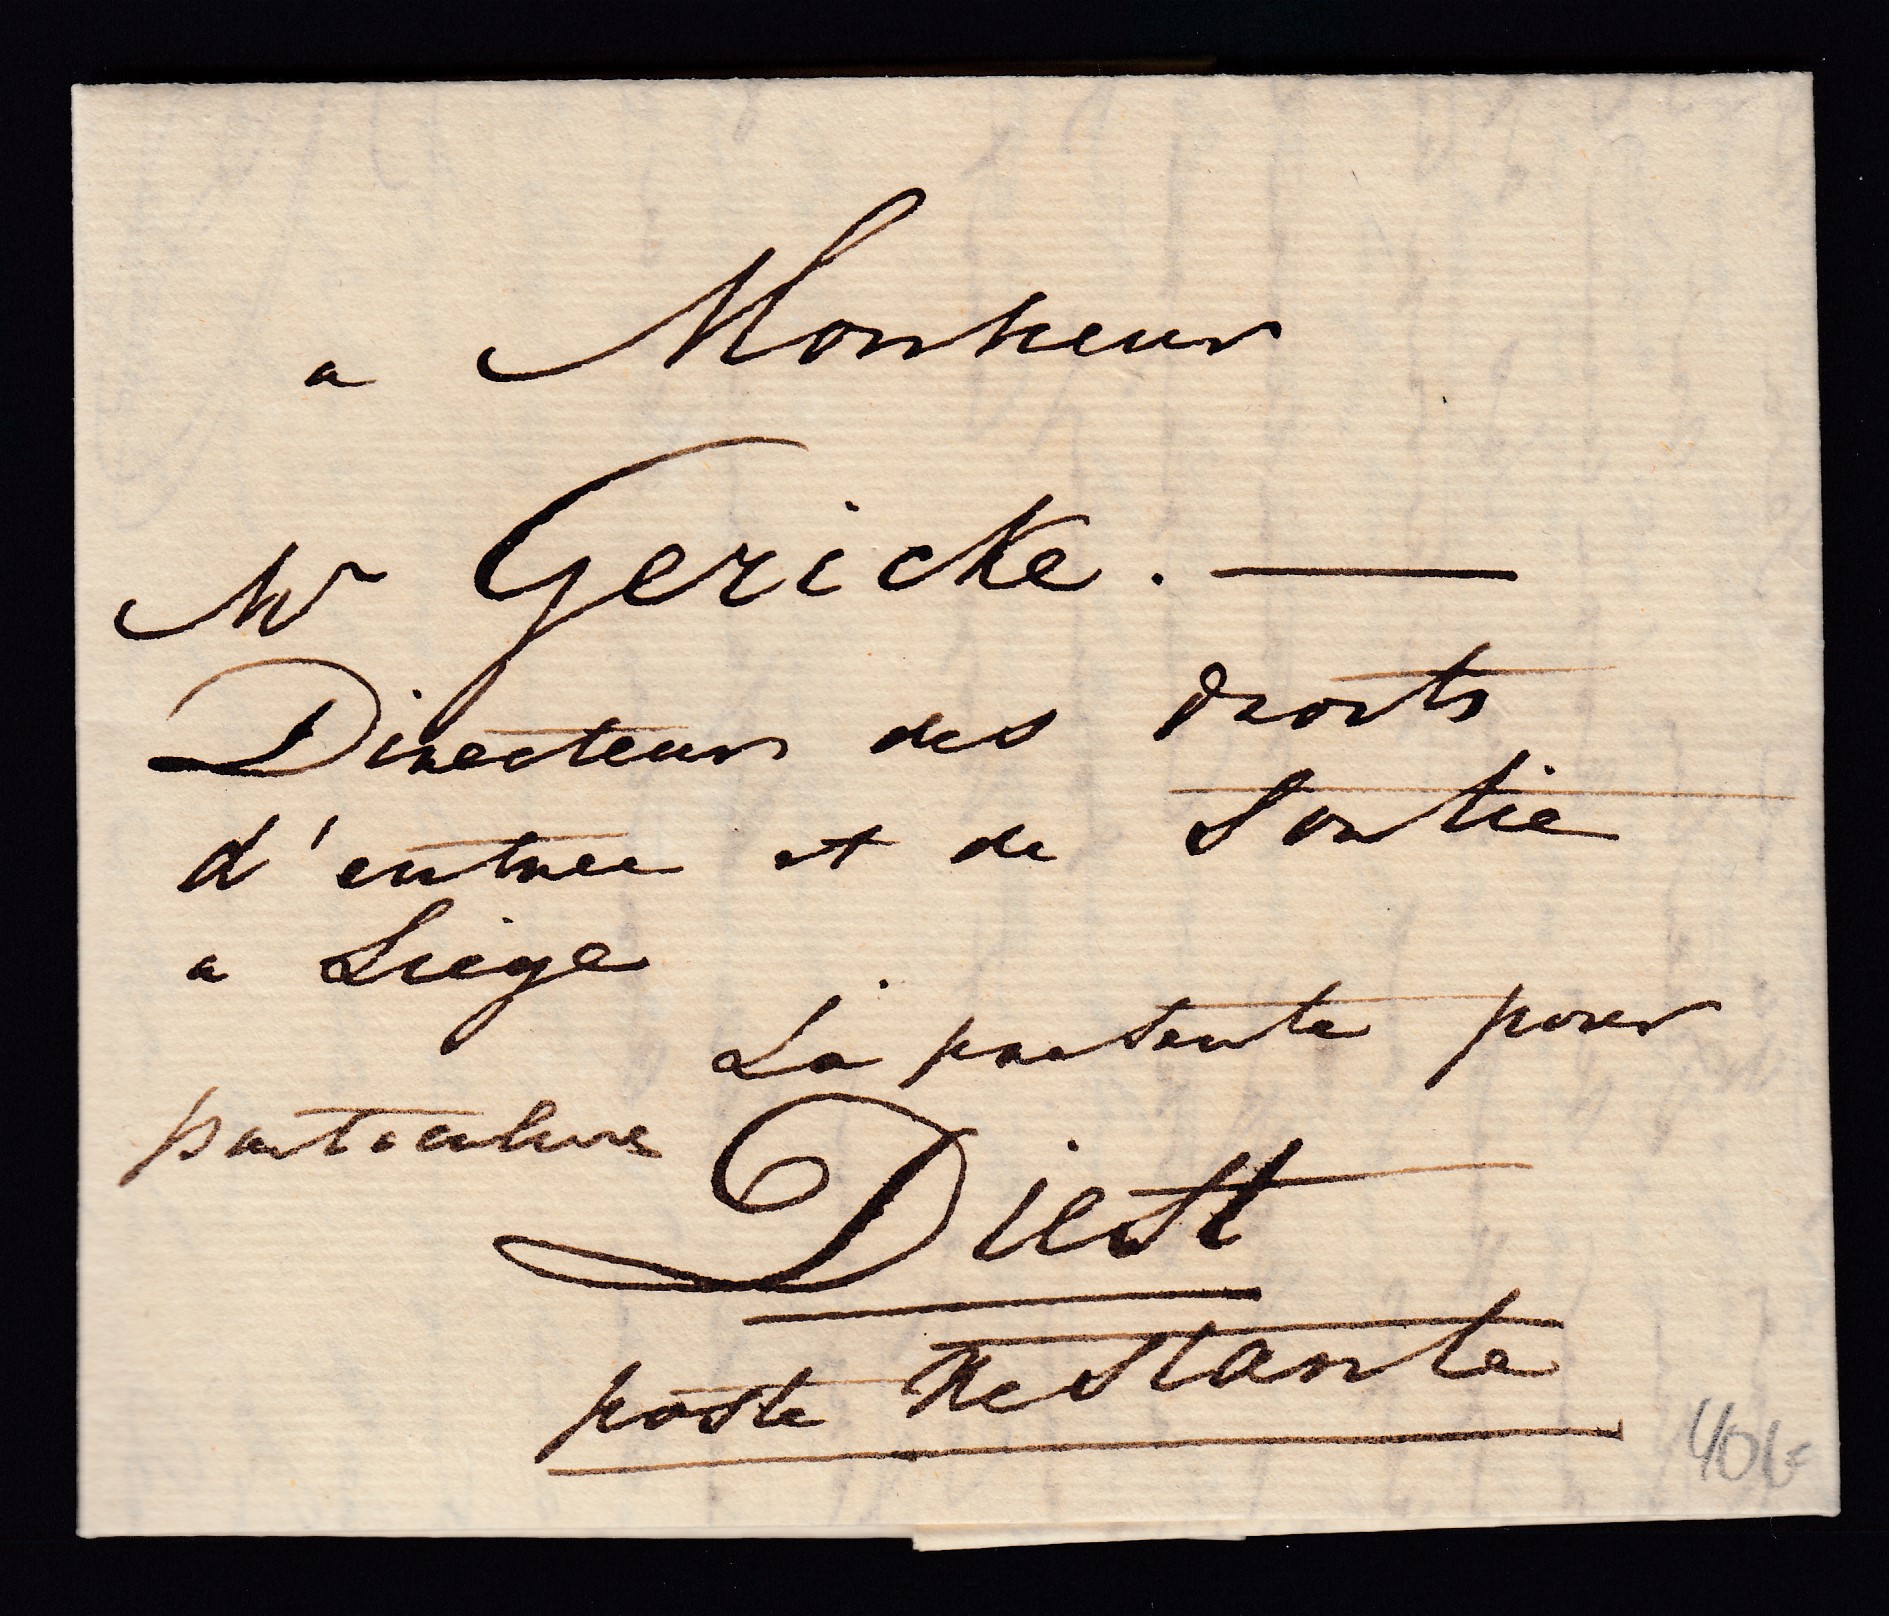 a Monsieur
Mr Gericke. —
Directeur des droits
d'entree et de Sortie
a Liege
La presente pour
particuliere
Diest
poste Restante